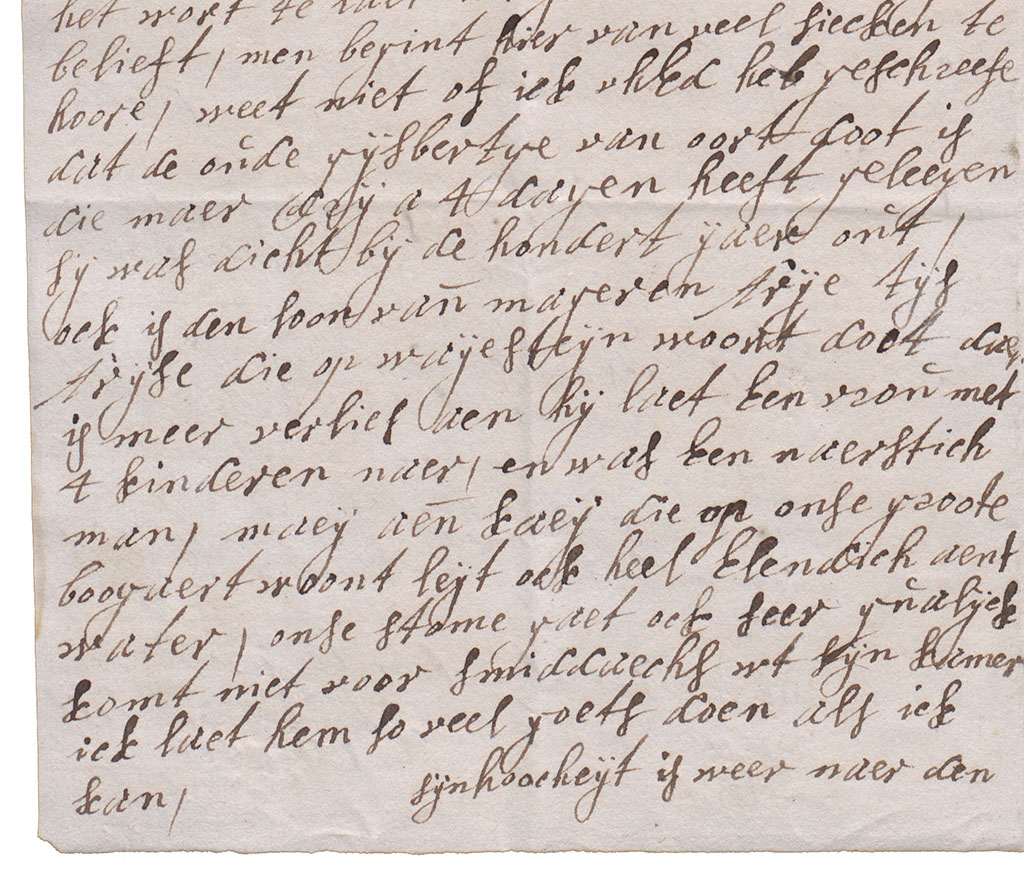 het wort te laet
belieft / men begint hier van veel siecken te
hoore / weet niet of ick uhEd heb geschreefe
dat de oude gijsbertge van oort doot is
die maer drij a 4 dagen heeft geleegen
sij was dicht bij de hondert ijaer out /
ock is den soon van mageren frije tijs
frijse die op waijesteijn woont doet daer
is meer verlies aen hij laet Een vrou met
4 kinderen naer / en was Een naerstich
man / maeij aen kaeij die op onse groote
boogaert woont leijt ock heel Elendich aent
water / onse stome gaet ock seer qualijck
komt niet voor smiddaechs ut sijn kamer
ick laet hem so veel goets doen als ick
kan / sijnhoocheijt is weer naer den